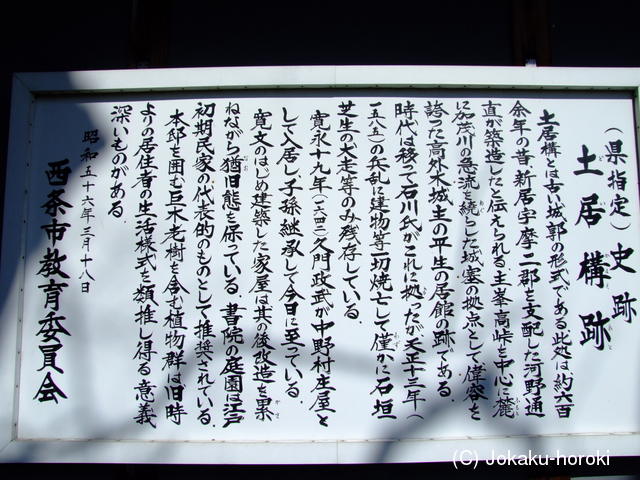 （県指定）史跡
土居構跡
土居構とは古い城郭の形式である。此処は約六百
余年の昔、新居宇摩二郡を支配した河野通
直が築造したと伝えられる。主峯高峠を中心に麓
に加茂川の急流を繞らした城塞の拠点として偉容を
誇った高外木城主の平生の居館の跡である。
時代は移って石川氏がこれに拠ったが天正十三年（
一五八五）の兵乱に建物等一切焼亡して僅かに石垣
芝生の犬走等のみ残存している。
寛永十九年（一六四二）久門政武が中野村庄屋と
して入居し、子孫継承して今日に至っている。
寛文のはじめ建築した家屋は其の後改造を累
ねながら猶旧態を保っている。書院の庭園は江戸
初期民家の代表的のものとして推奨されている。
本邸を囲む巨木老樹を含む植物群は旧時
よりの居住者の生活様式を類推し得る意義
深いものがある。
昭和五十六年三月十八日
西条市教育委員会
(C) Jokaku-horoki